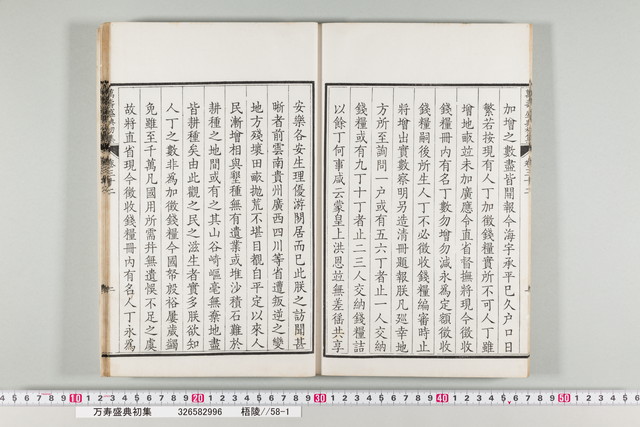 加增之數盡皆開報今海宇承平已久户口日
繁若按現有人丁加徵錢糧實所不可人丁雖
增地畝並未加廣應令直省督撫將現今徵收
錢糧冊內有名丁數勿增勿減永為定額徵收
錢糧嗣後所生人丁不必徵收錢糧編審時止
將增出實數察明另造清冊題報朕凡廵幸地
方所至詢問一户或有五六丁者止一人交納
錢糧或有九丁十丁者止二三人交納錢糧詰
以餘丁何事咸云蒙皇上洪恩竝無差徭共享
安樂各安生理優游閒居而已此朕之訪聞甚
晰者前雲南貴州廣西四川等省遭叛逆之變
地方殘壞田畝拋荒不堪目覩自平定以來人
民漸增相與墾種無有遺業或堆沙積石難於
耕種之地間或有之其山谷崎嶇毫無棄地盡
皆耕種矣由此觀之民之滋生者實多朕欲知
人丁之數非為加徵錢糧今國帑殷裕屢歲蠲
免雖至千萬凡國用所需幷無遺悞不足之虞
故將直省現今徵收錢糧冊內有名人丁永為
10 20 30 40 50
万寿盛典初集 326582996 梧陵//58-1